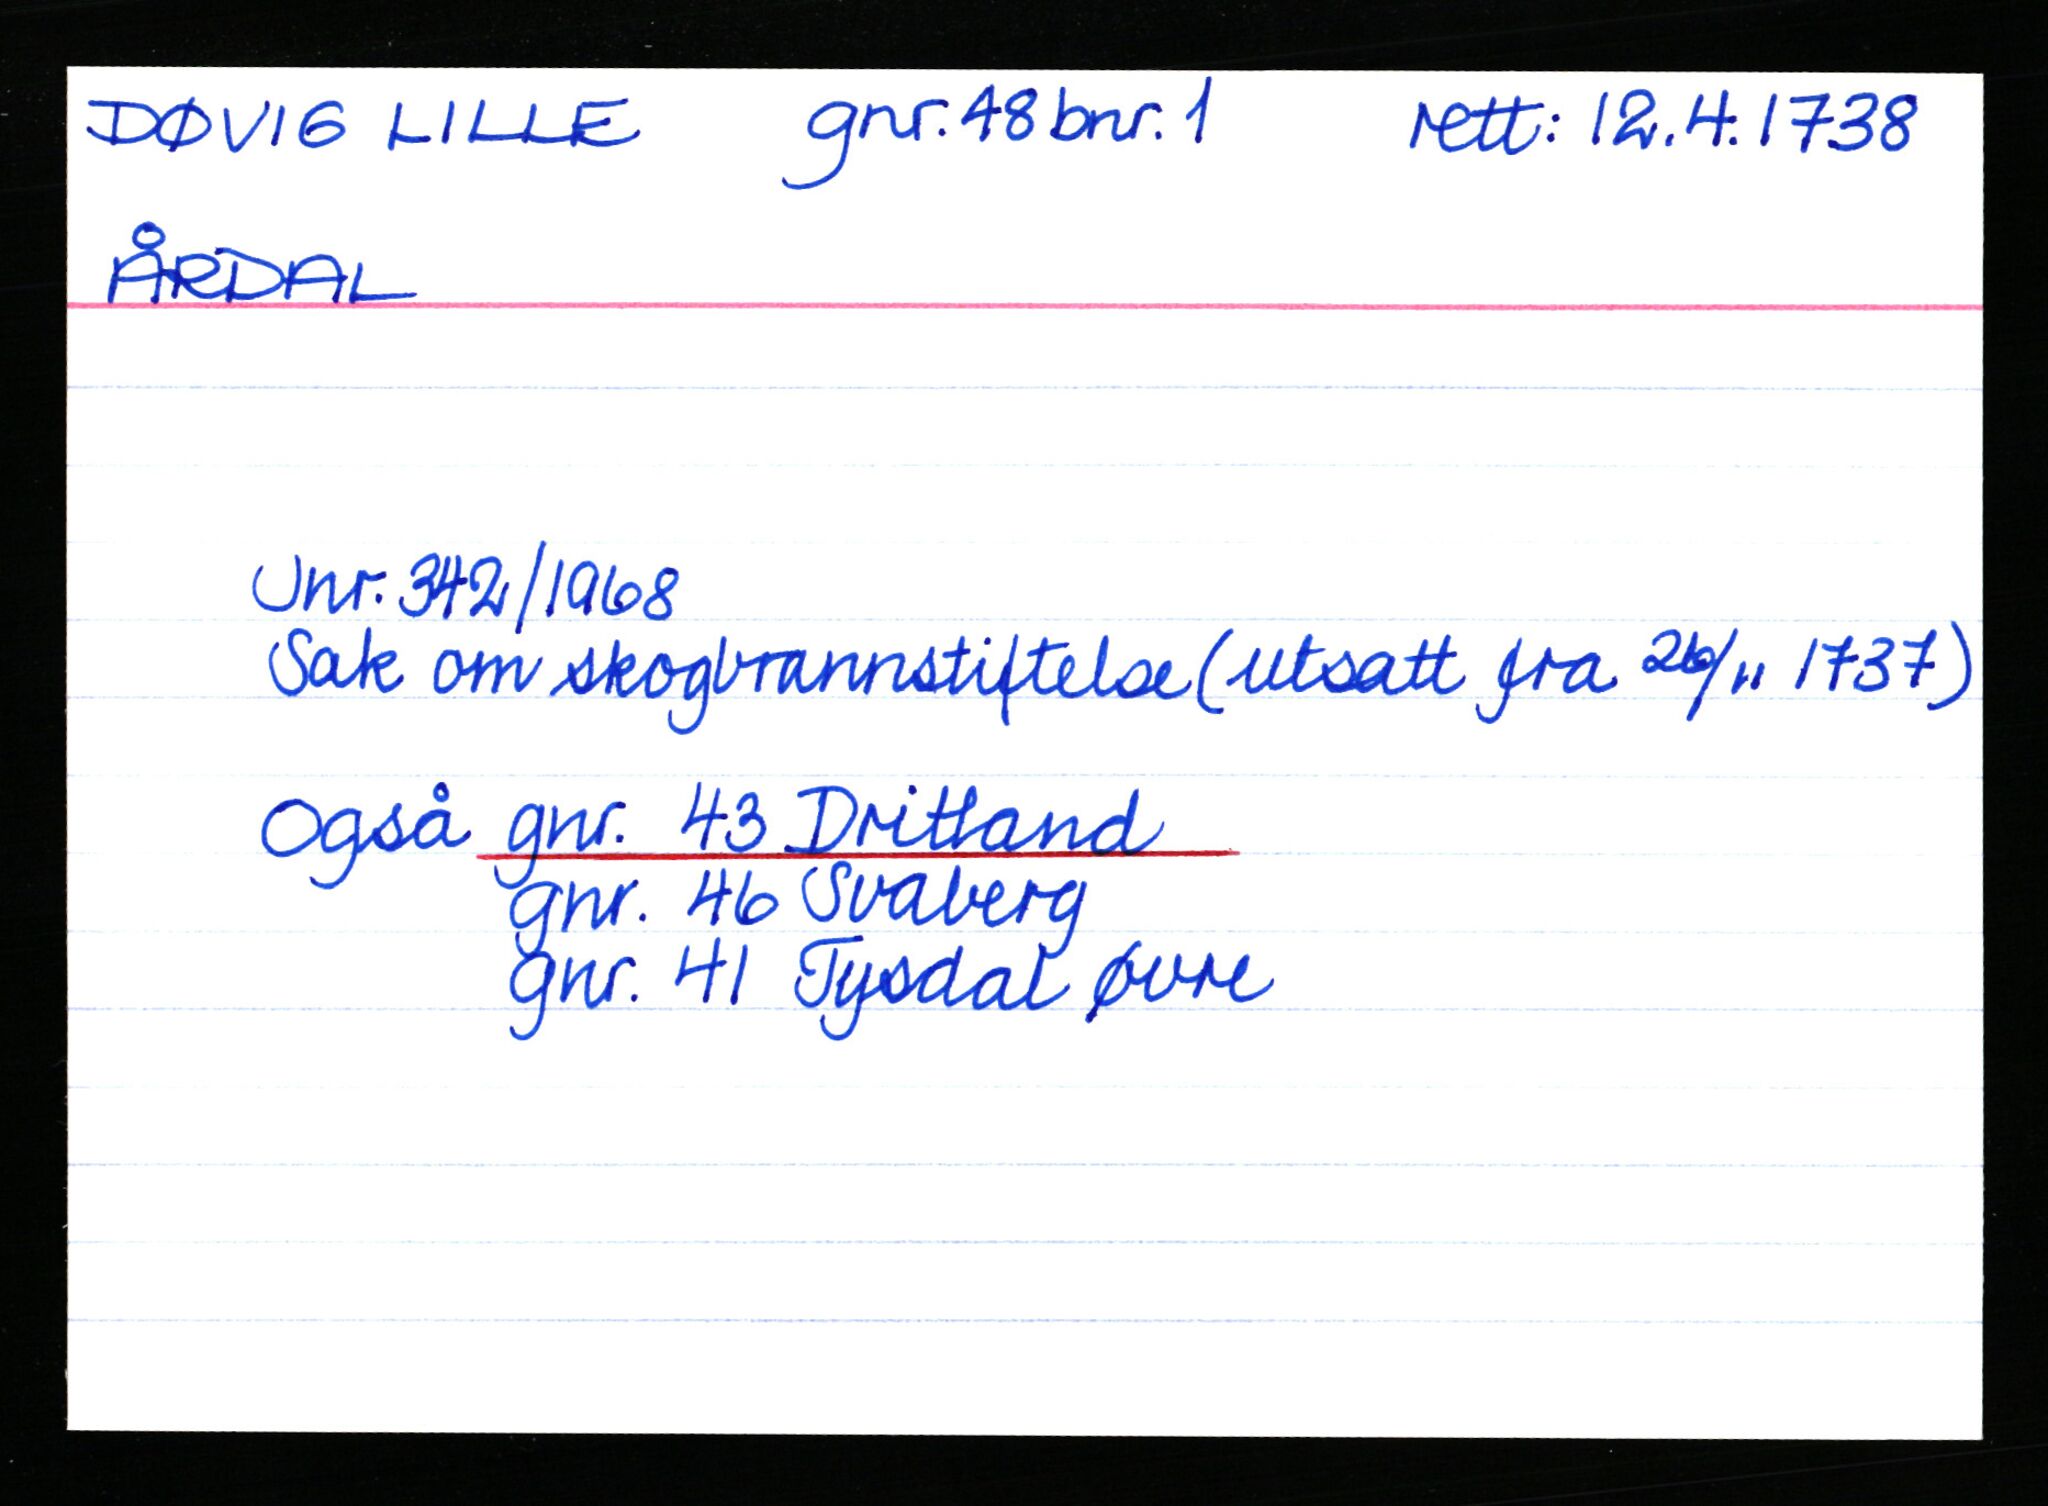 DØVIG LILLE gnr. 48 bnr. 1 rett: 12.4.1738
ÅRDAL
Jnr. 342/1968
Sak om skogbrannstiftelse (utsatt fra 26/11 1737)
Også gnr. 43 Dritland
gnr. 46 Svaberg
gnr. 41 Tysdal øvre